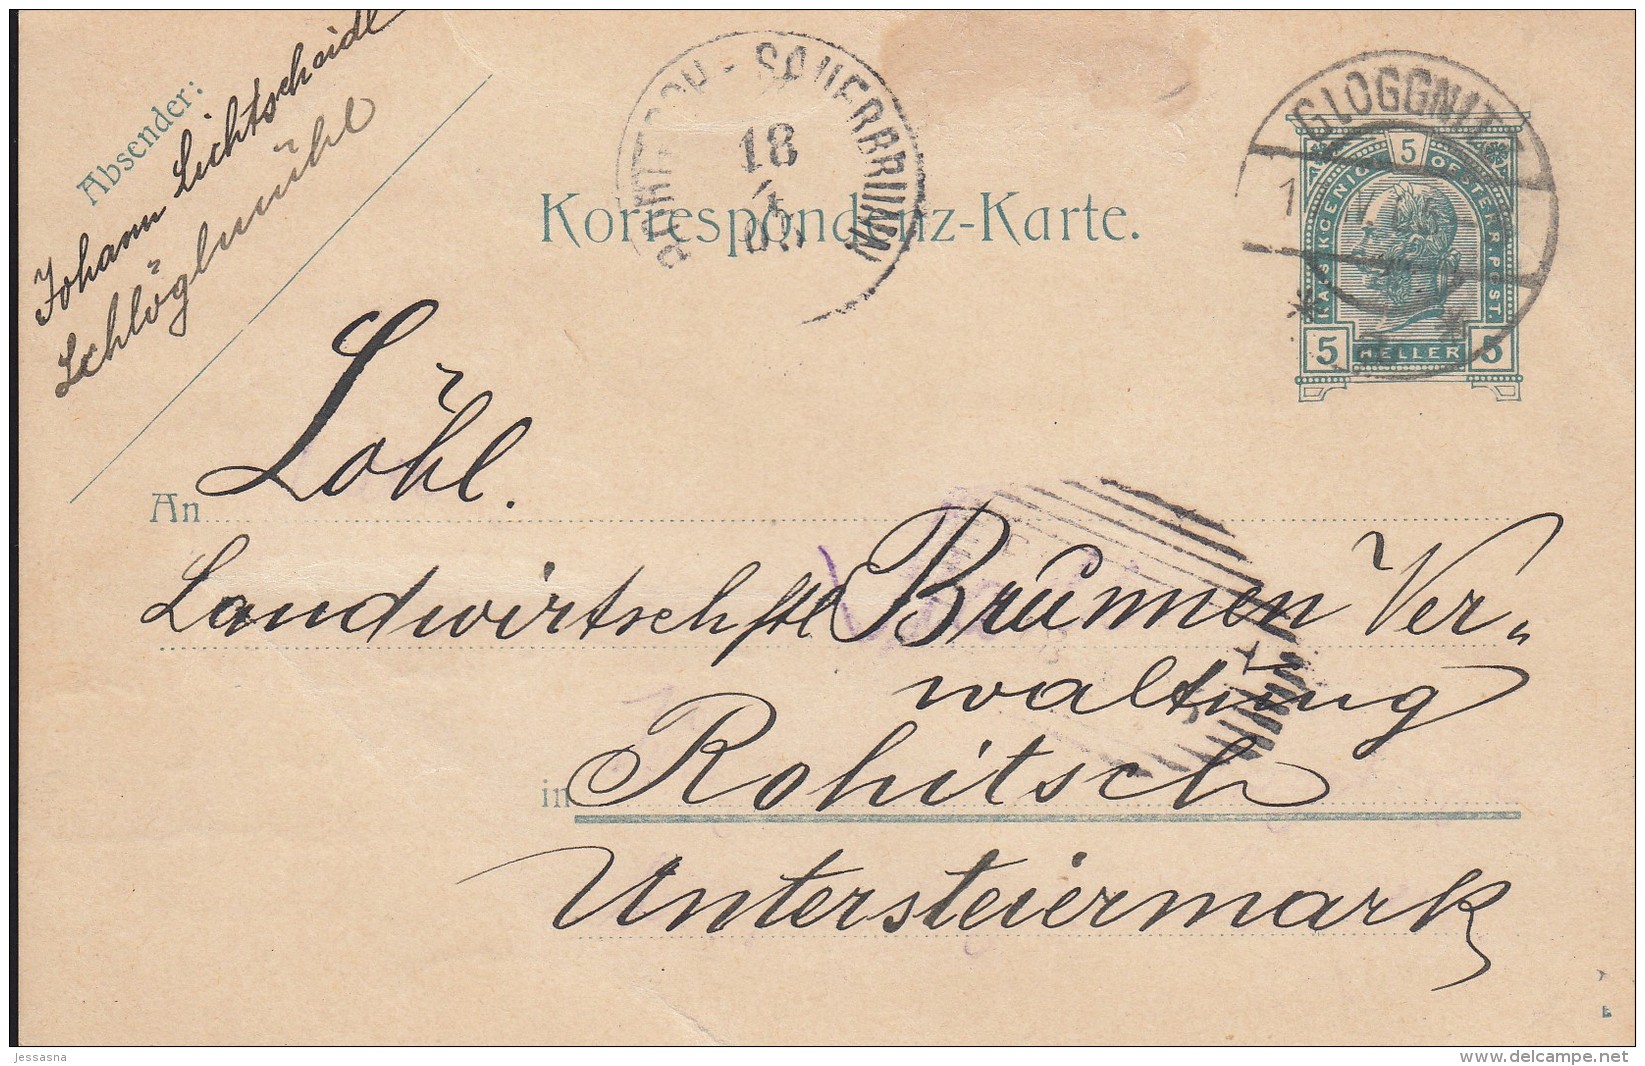 Absender:
Johann Lichtscheidl
Schlöglmühl
ROHITSCH-SAUERBRUNN
18
GLOGGNITZ
Korrespondenz-Karte.
5
KAIS. KOENIGL. OESTERR. POST.
5 HELLER 5
An Löbl.
Landwirtschftl Brunnen Ver„
waltung
in Rohitsch
Untersteiermark
jessasna
www.delcampe.net